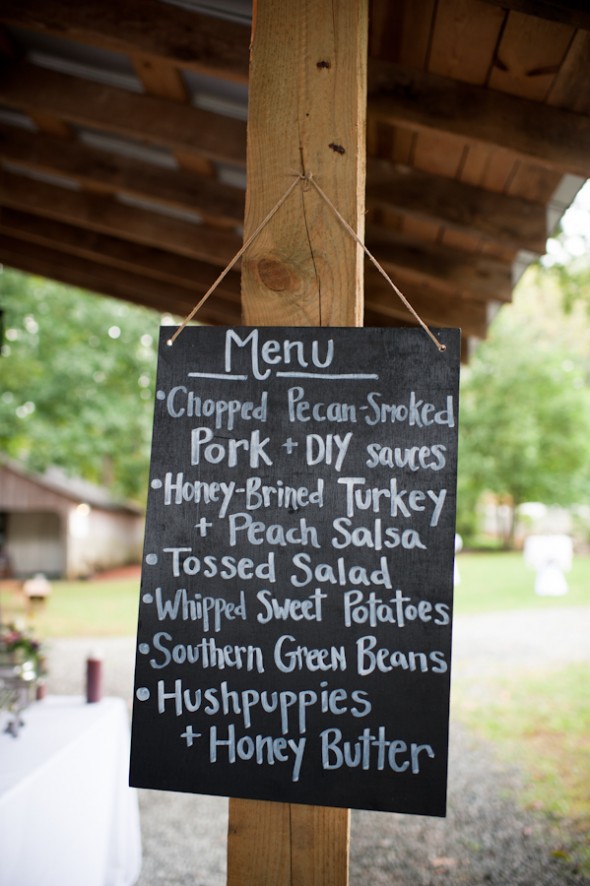 Menu
• Chopped Pecan-Smoked
Pork + DIY sauces
• Honey-Brined Turkey
+ Peach Salsa
• Tossed Salad
• Whipped Sweet Potatoes
• Southern Green Beans
• Hushpuppies
+ Honey Butter